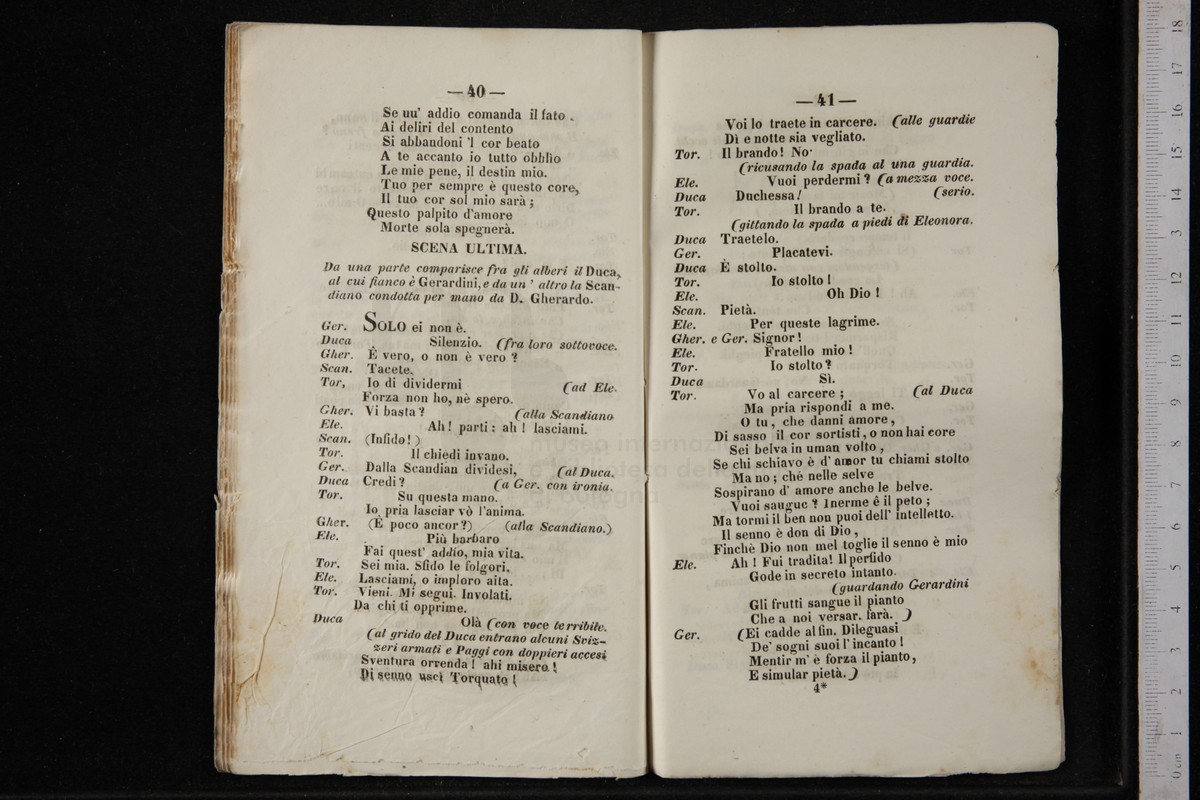 —40—
Se uu' addio comanda il fato .
Ai deliri del contento
Si abbandoni 'l cor beato
A te accanto io tutto obblìo
Le mie pene, il destin mio.
Tuo per sempre è questo core,
Il tuo cor sol mio sarà ;
Questo palpito d'amore
Morte sola spegnerà.
SCENA ULTIMA.
Da una parte comparisce fra gli alberi il Duca,
al cui fianco è Gerardini, e da un ' altro la Scan-
diano condotta per mano da D. Gherardo.
Ger. SOLO ei non è.
Duca Silenzio. (fra loro sottovoce.
Gher. È vero, o non è vero ?
Scan. Tacete.
Tor, Io di dividermi (ad Ele.
Forza non ho, nè spero.
Gher. Vi basta ? (alla Scandiano
Ele. Ah ! parti : ah ! lasciami.
Scan. (Infido ! )
Tor. Il chiedi invano.
Ger. Dalla Scandian dividesi, (al Duca.
Duca Credi ? (a Ger. con ironia.
Tor. Su questa mano.
Io pria lasciar vò l'anima.
Gher. (È poco ancor ?) (alla Scandiano.)
Ele. Più barbaro
Fai quest' addio, mia vita.
Tor. Sei mia. Sfido le folgori.
Ele. Lasciami, o imploro aita.
Tor. Vieni. Mi segui. Involati.
Da chi ti opprime.
Duca Olà (con voce terribile.
(al grido del Duca entrano alcuni Sviz-
zeri armati e Paggi con doppieri accesi
Sventura orrenda ! ahi misero !
Di senno uscì Torquato !
—41—
Voi lo traete in carcere. (alle guardie
Dì e notte sia vegliato.
Tor. Il brando ! No·
(ricusando la spada al una guardia.
Ele. Vuoi perdermi ? (a mezza voce.
Duca Duchessa ! (serio.
Tor. Il brando a te.
(gittando la spada a piedi di Eleonora.
Duca Traetelo.
Ger. Placatevi.
Duca È stolto.
Tor. Io stolto !
Ele. Oh Dio !
Scan. Pietà.
Ele. Per queste lagrime.
Gher. e Ger. Signor !
Ele. Fratello mio !
Tor. Io stolto ?
Duca Sì.
Tor. Vo al carcere ; (al Duca
Ma pria rispondi a me.
O tu , che danni amore ,
Di sasso il cor sortisti , o non hai core
Sei belva in uman volto ,
Se chi schiavo è d' amor tu chiami stolto
Ma no ; chè nelle selve
Sospirano d' amore anche le belve.
Vuoi saugue ? Inerme ê il peto ;
Ma tormi il ben non puoi dell' intelletto.
Il senno è don di Dio ,
Finchè Dio non mel toglie il senno è mio
Ele. Ah ! Fui tradita! Il perfido
Gode in secreto intanto.
(guardando Gerardini
Gli frutti sangue il pianto
Che a noi versar. farà. )
Ger. (Ei cadde alfin. Dileguasi
De' sogni suoi l' incanto !
Mentir m' è forza il pianto,
E simular pietà. )
4*
museo internazionale
e biblioteca della musica
di bologna
0 cm 1 2 3 4 5 6 7 8 9 10 11 12 13 14 15 16 17 18